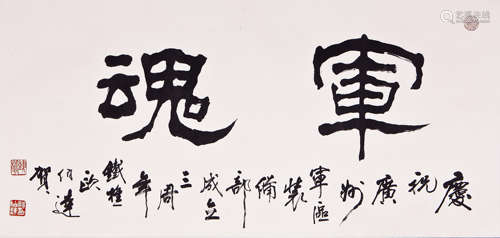 軍魂
慶祝廣州軍區裝備部成立三周年鐵欧伯達賀